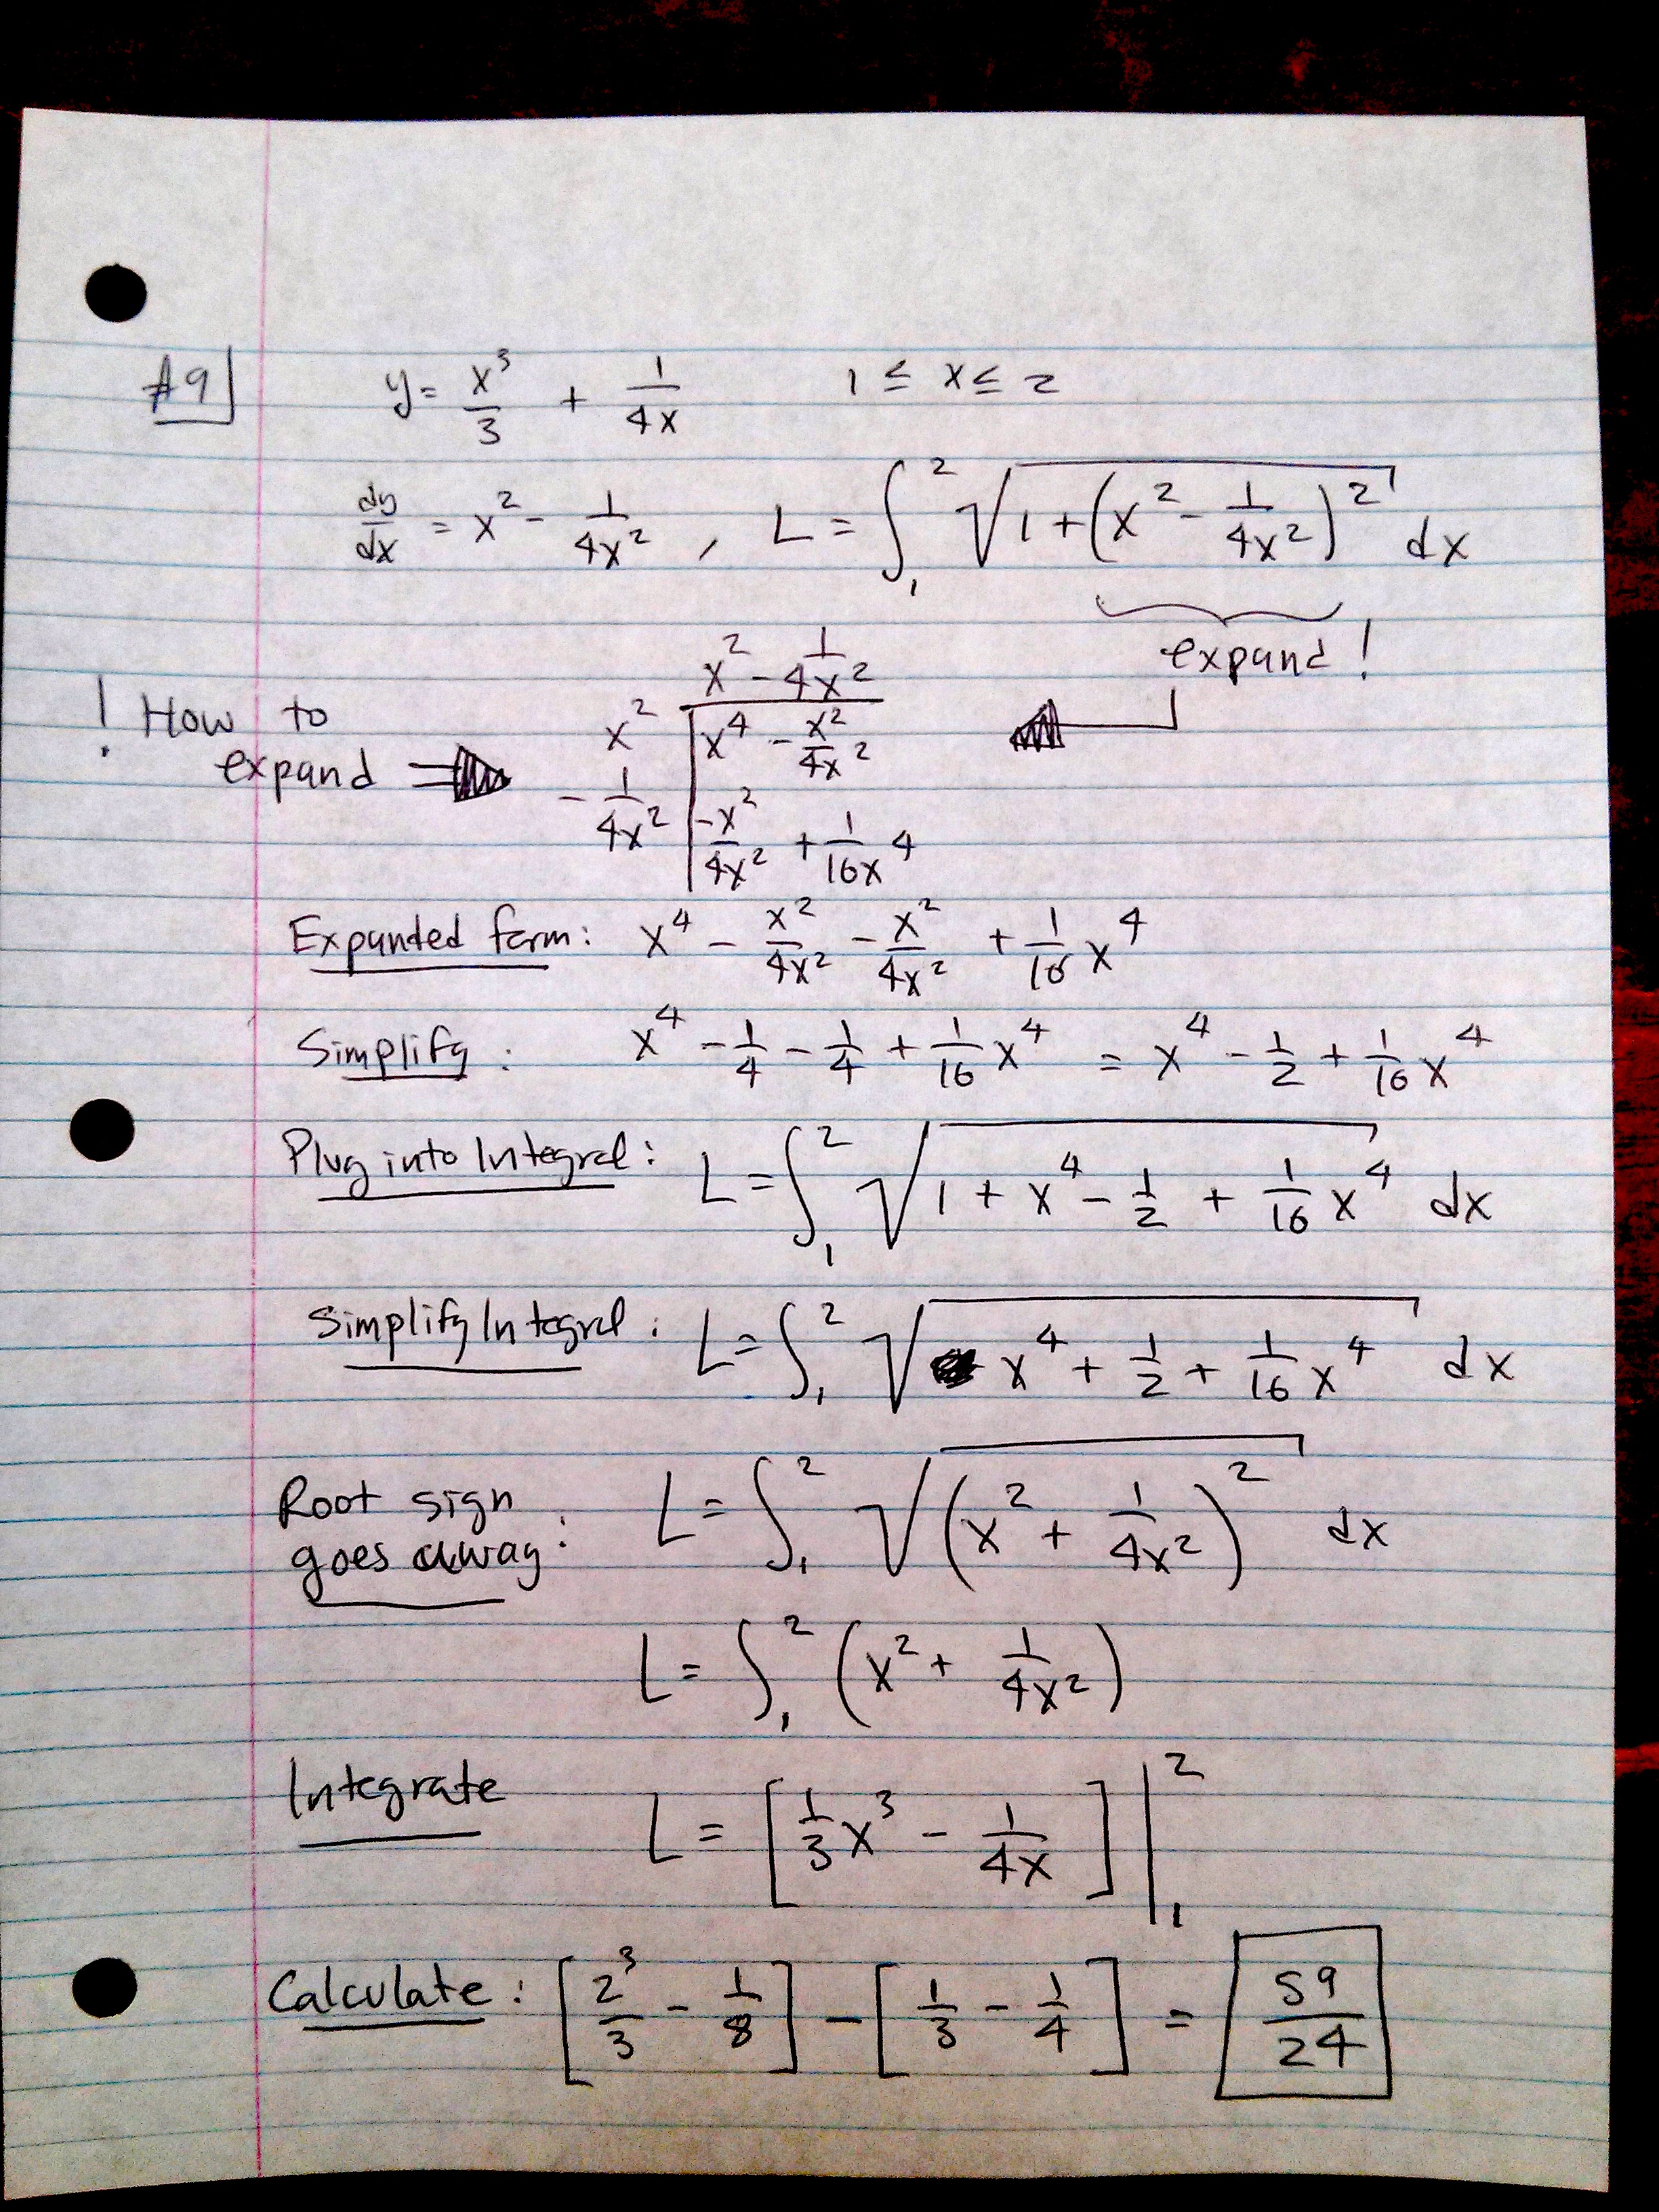 #9 y = x³/3 + 1/4x 1 ≤ x ≤ 2
dy/dx = x² - 1/4x² , L = ∫₁² √(1 + (x² - 1/4x²)²) dx
expand!
x² - 1/4x²
! How to
expand ⇒
x² | x⁴ - x²/4x²
- 1/4x² | -x²/4x² + 1/16x⁴
Expanded form: x⁴ - x²/4x² - x²/4x² + 1/16 x⁴
Simplify: x⁴ - 1/4 - 1/4 + 1/16 x⁴ = x⁴ - 1/2 + 1/16 x⁴
Plug into Integral: L = ∫₁² √(1 + x⁴ - 1/2 + 1/16 x⁴) dx
Simplify Integral: L = ∫₁² √(x⁴ + 1/2 + 1/16 x⁴) dx
Root sign
goes away: L = ∫₁² √((x² + 1/4x²)²) dx
L = ∫₁² (x² + 1/4x²)
Integrate L = [1/3 x³ - 1/4x] |₁²
Calculate: [2³/3 - 1/8] - [1/3 - 1/4] = 59/24